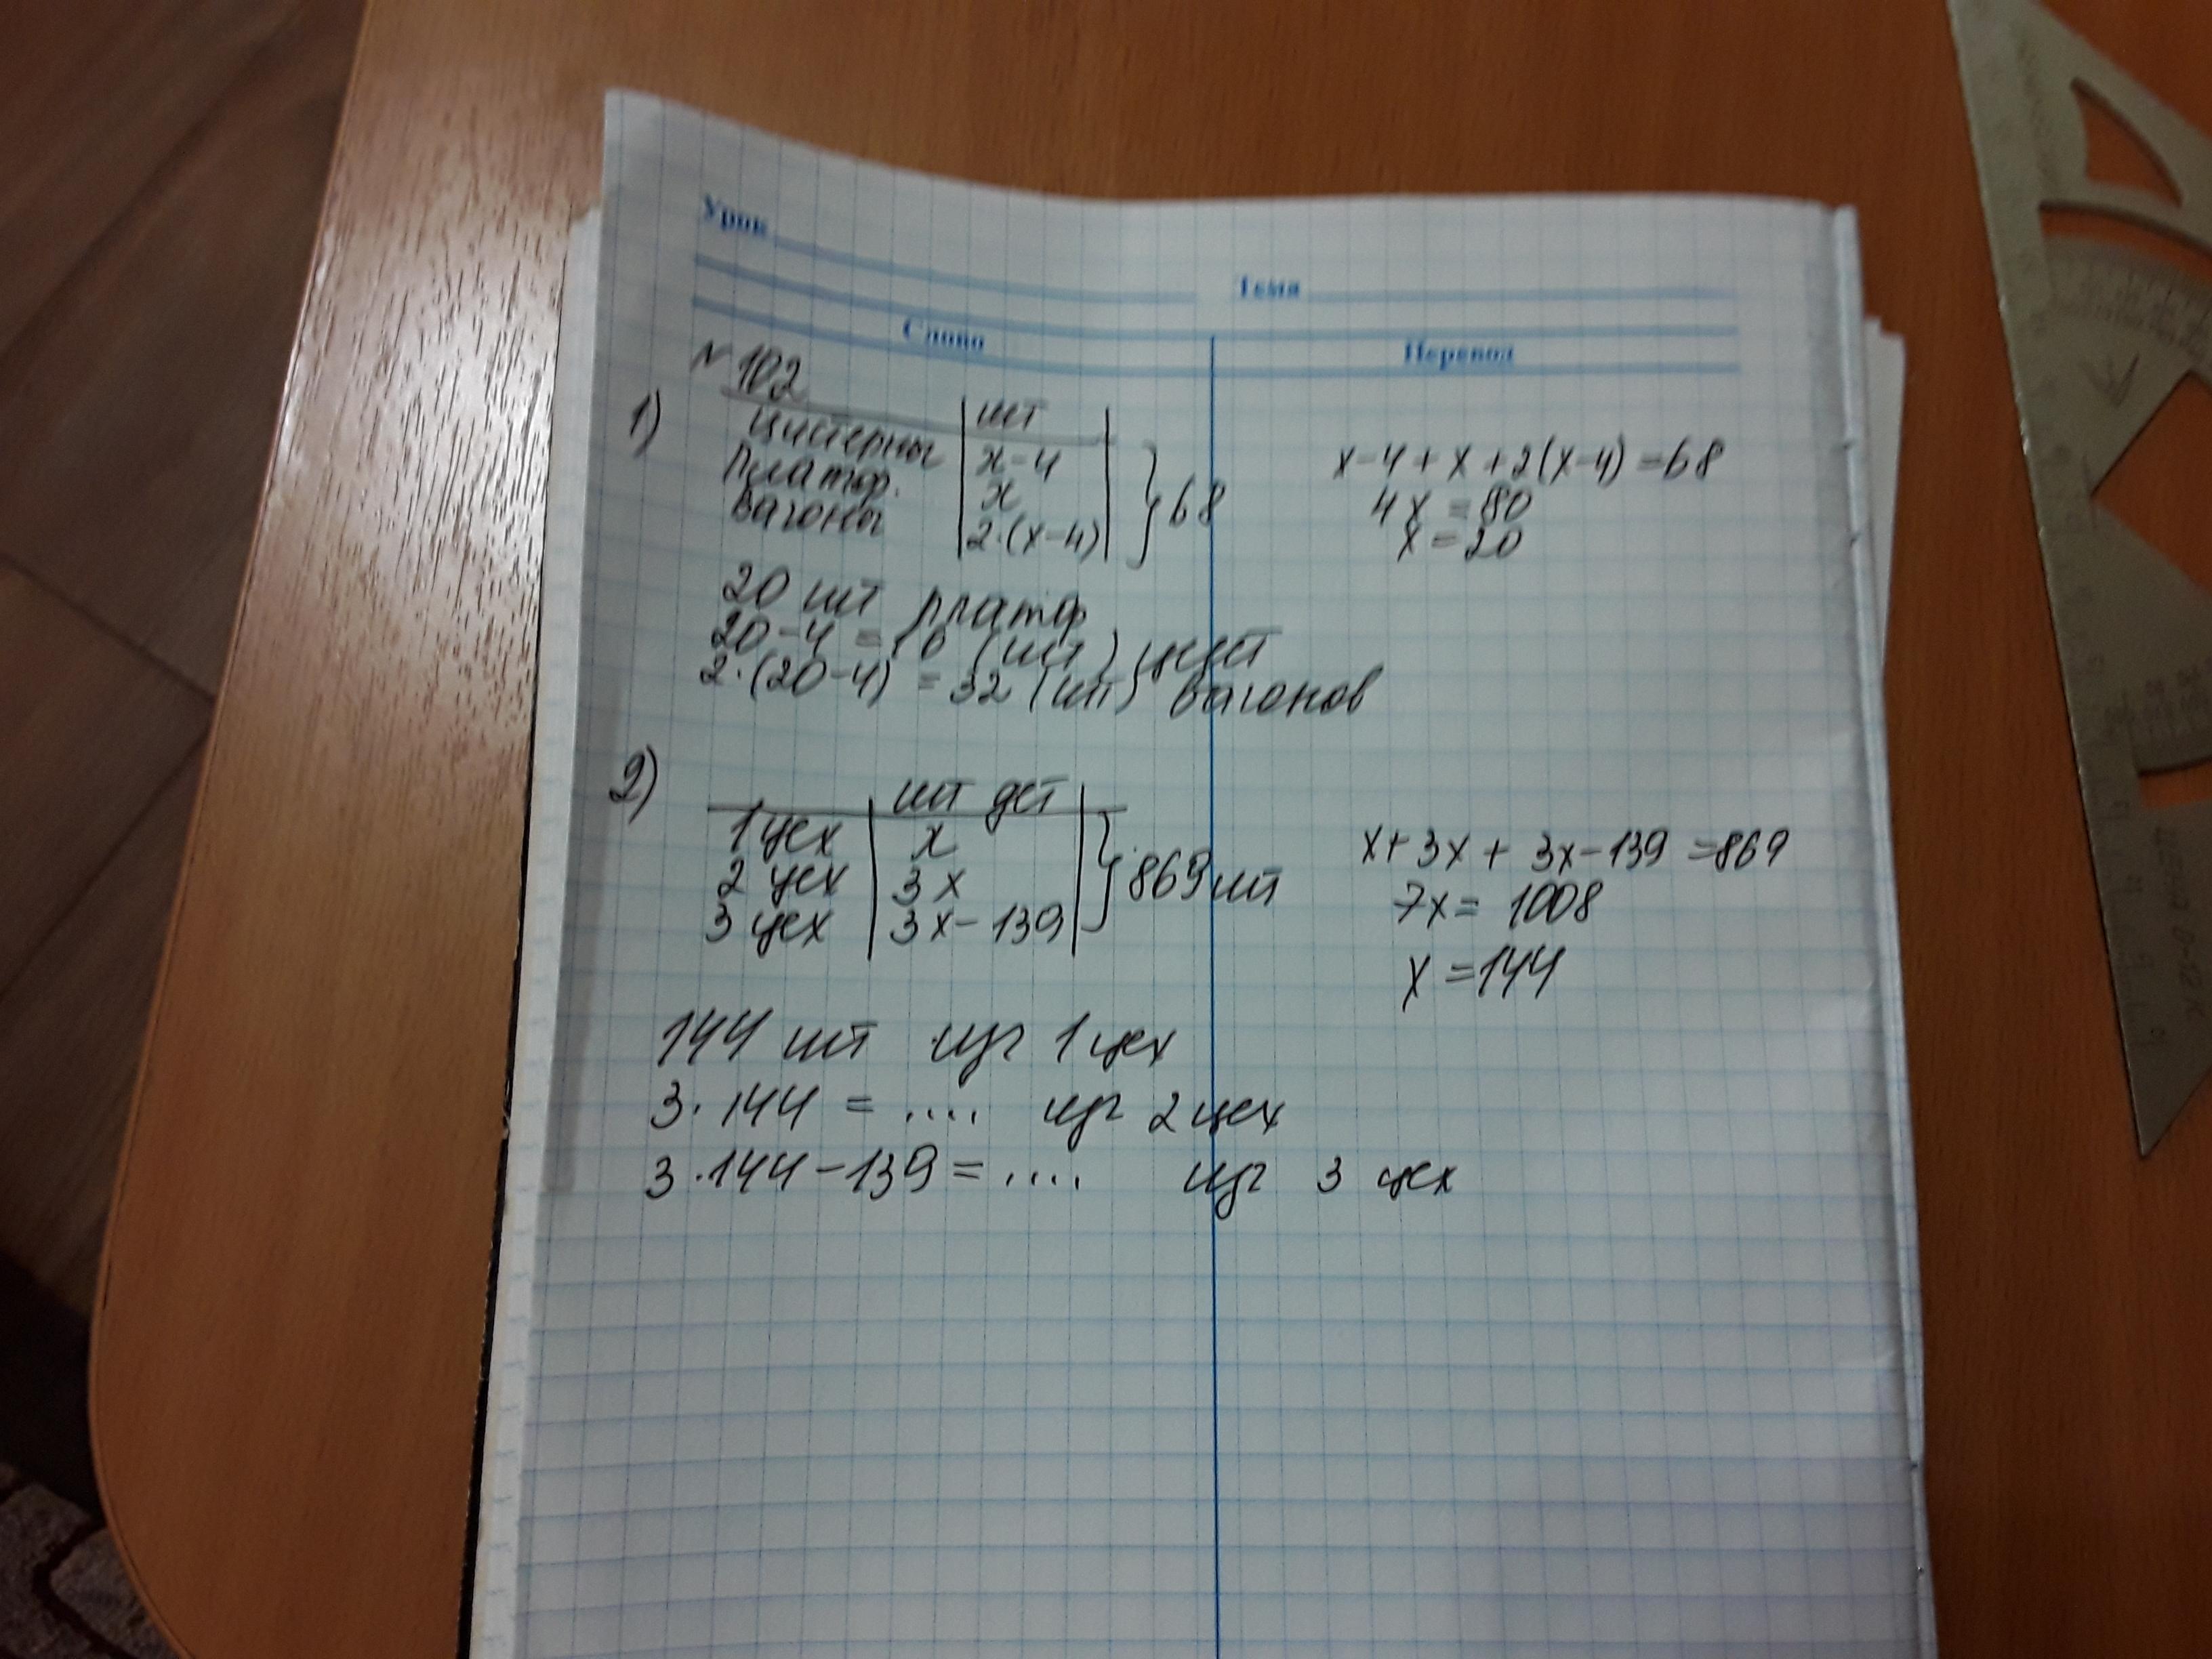 Урок
Тема
Слово Перевод
N 102
1) шт
Цистерны x-4
Платф. x
Вагоны 2·(x-4)
} 68
x-4+x+2(x-4)=68
4x=80
x=20
20 шт платф
20-4=16 (шт) цист
2·(20-4)=32 (шт) вагонов
2) шт дет
1 цех x
2 цех 3x
3 цех 3x-139
} 869 шт
x+3x+3x-139=869
7x=1008
x=144
144 шт изг 1 цех
3·144=.... изг 2 цех
3·144-139=.... изг 3 цех